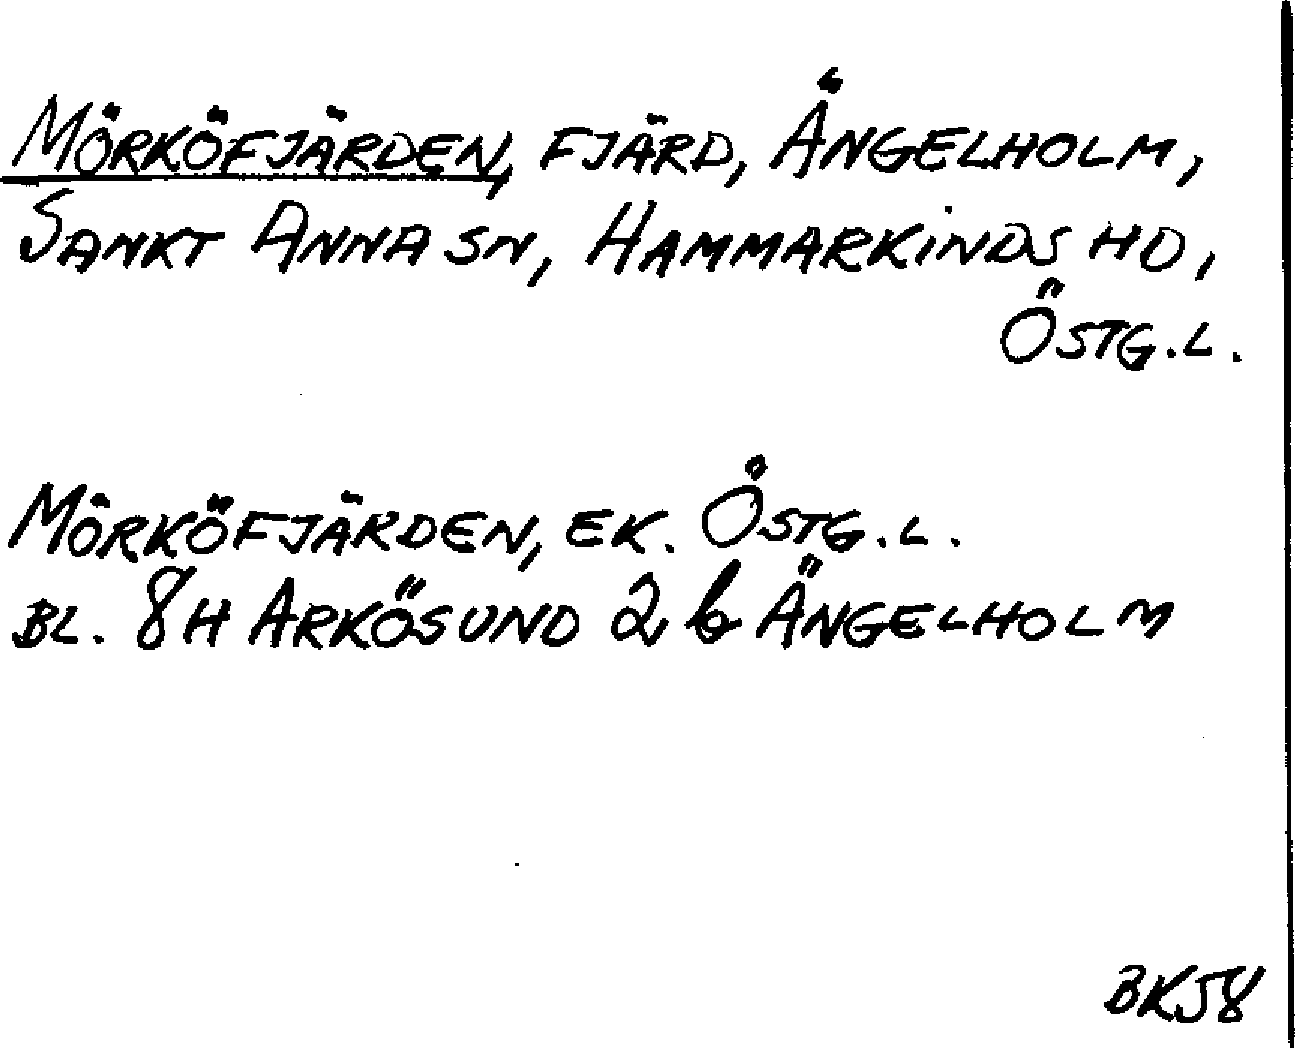 MÖRKÖFJÄRDEN, FJÄRD, ÄNGELHOLM,
SANKT ANNA SN, HAMMARKINDS HD,
ÖSTG.L.
MÖRKÖFJÄRDEN, EK. ÖSTG.L.
BL. 8H ARKÖSUND 2 b ÄNGELHOLM
BK58